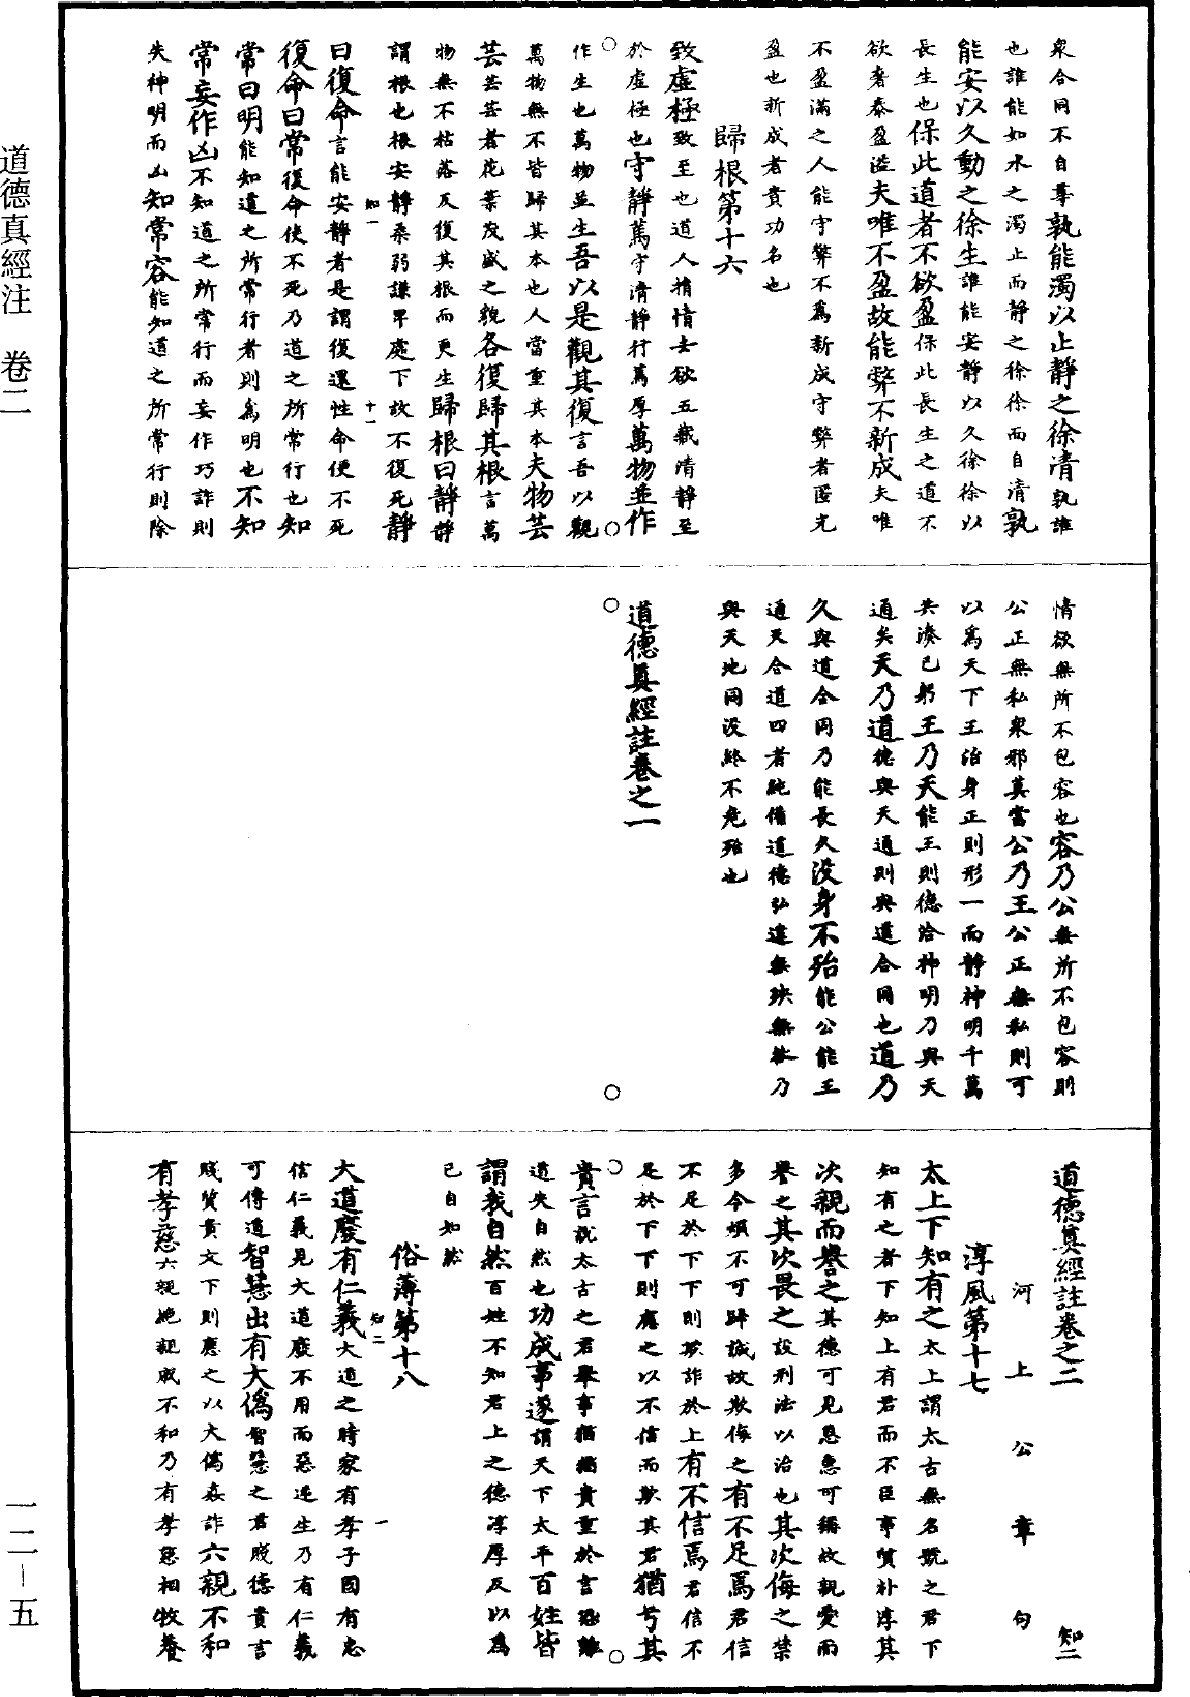 道德真經注　卷二
眾合同不自尊孰能濁以止靜之徐清孰誰
也誰能如水之濁止而靜之徐徐而自清孰
能安以久動之徐生誰能安靜以久徐徐以
長生也保此道者不欲盈保此長生之道不
欲奢泰盈溢夫唯不盈故能弊不新成夫唯
不盈滿之人能守弊不為新成守弊者匿光
盈也新成者貴功名也
歸根第十六
致虛極致至也道人捐情去欲五藏清靜至
於虛極也守靜篤守清靜行篤厚萬物並作
作生也萬物並生吾以是觀其復言吾以觀
萬物無不皆歸其本也人當重其本夫物芸
芸芸芸者花葉茂盛之貌各復歸其根言萬
物無不枯落反復其根而更生歸根曰靜靜
謂根也根安靜柔弱謙卑處下故不復死靜
知一　十一
曰復命言能安靜者是謂復還性命使不死
復命曰常復命使不死乃道之所常行也知
常曰明能知道之所常行者則為明也不知
常妄作凶不知道之所常行而妄作巧詐則
失神明而凶知常容能知道之所常行則除
情欲無所不包容也容乃公無所不包容則
公正無私眾邪莫當公乃王公正無私則可
以為天下王治身正則形一而靜神明千萬
共湊已躬王乃天能王則德洽神明乃與天
通矣天乃道德與天通則與道合同也道乃
久與道合同乃能長久沒身不殆能公能王
通天合道四者純備道德弘遠無殃無咎乃
與天地同沒終不危殆也
道德真經註卷之一
道德真經註卷之二　知二
河上公章句
淳風第十七
太上下知有之太上謂太古無名號之君下
知有之者下知上有君而不臣事質朴淳其
次親而譽之其德可見恩惠可稱故親愛而
譽之其次畏之設刑法以治也其次侮之禁
多令煩不可歸誠故欺侮之有不足焉君信
不足於下下則欺詐於上有不信焉君信不
足於下下則應之以不信而欺其君猶兮其
貴言說太古之君舉事猶猶貴重於言恐離
道失自然也功成事遂謂天下太平百姓皆
謂我自然百姓不知君上之德淳厚反以為
已自知然
俗薄第十八
大道廢有仁義大道之時家有孝子國有忠
知二　一
信仁義見大道廢不用而惡逆生乃有仁義
可傳道智慧出有大偽智慧之君賤德貴言
賤質貴文下則應之以大偽姦詐六親不和
有孝慈六親絕親戚不和乃有孝慈相牧養
一二－五